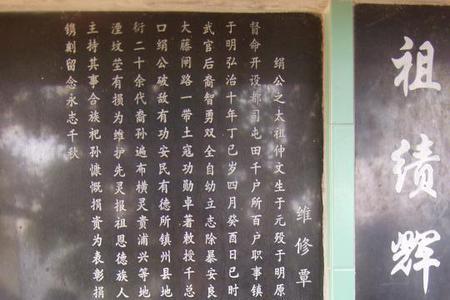 祖绩辉
维修覃
绢公之太祖仲文生于元殁于明原
督命开设都司屯田千户所百户职事镇
于明弘治十年丁巳岁四月癸酉日巳时
武官后裔智勇双全自幼立志除暴安良
大藤闸路一带土寇功勋卓著敕授千总
口绢公破敌有功安民有德所镇州县地
衍二十余代裔孙遍布横灵贵浦兴等地
湮坟茔有损为维护先灵报祖恩德族人
主持其事合族祀孙慷慨捐资为表彰捐
镌刻留念永志千秋